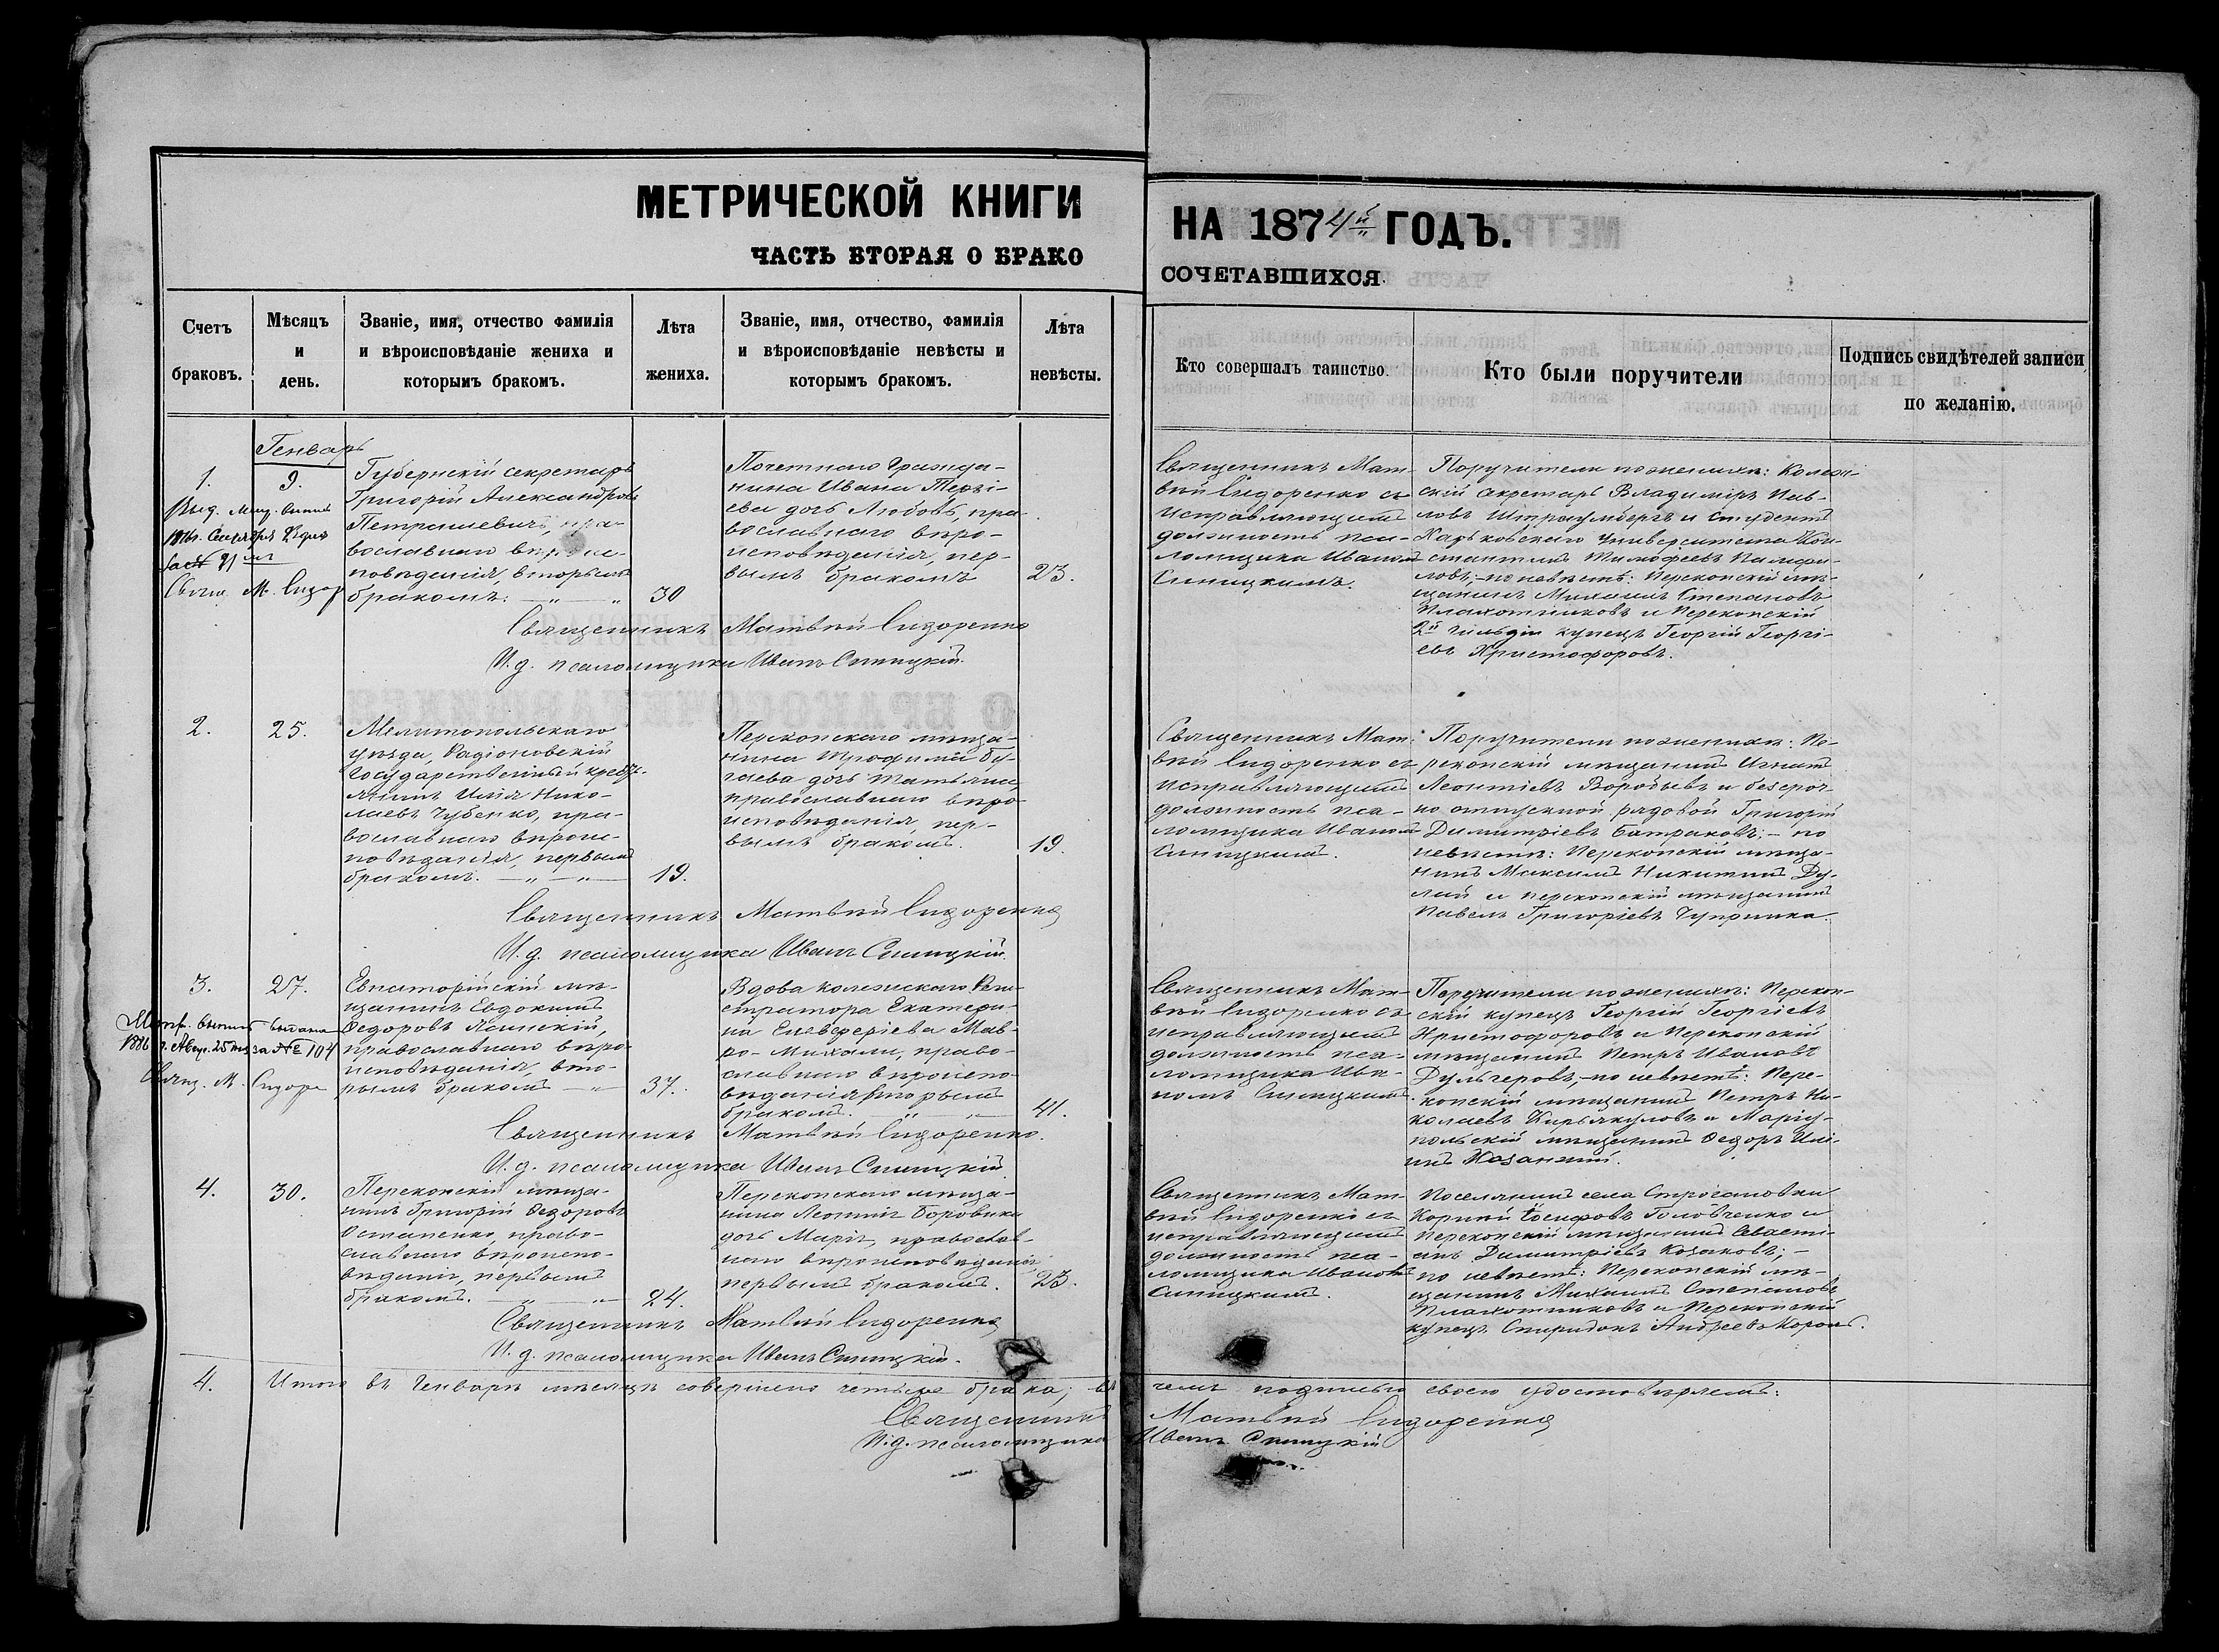 МЕТРИЧЕСКОЙ КНИГИ
ЧАСТЬ ВТОРАЯ О БРАКО
Счетъ
браковъ.
Мѣсяцъ
и
день.
Званіе, имя, отчество фамилія
и вѣроисповѣданіе жениха и
которымъ бракомъ.
Лѣта
жениха.
Званіе, имя, отчество, фамилія
и вѣроисповѣданіе невѣсты и
которымъ бракомъ.
Лѣта
невѣсты.
НА 1874й ГОДЪ.
СОЧЕТАВШИХСЯ
Кто совершалъ таинство.
Кто были поручители
Подпись свидѣтелей записи
по желанію.
Генварь
1.
9.
Губернскій секретарь
Григорій Александровъ
Петрашевичъ, пра-
вославнаго вѣроис-
повѣданія, вторымъ
бракомъ.
30
Почетнаго Гражда-
нина Ивана
дочь Любовь, пра-
вославнаго вѣро-
исповѣданія, пер-
вымъ бракомъ
23.
Священникъ Мат-
вѣй Сидоренко съ
исправляющимъ
должность пса-
ломщика Иваномъ
Синицкимъ.
Поручители по женихѣ: Коллеж-
скій секретарь Владиміръ Пав-
ловъ и студентъ
Харьковскаго Университета Кон-
стантинъ Тимофеевъ
по невѣстѣ: Перекопскій мѣ-
щанинъ Михаилъ Степановъ
Плахотниковъ и Перекопскій
2й гильдіи купецъ Георгій Георгі-
евъ Христофоровъ.
Священникъ Матвѣй Сидоренко
И. д. псаломщика Иванъ Синицкій.
2.
25.
Мелитопольскаго
уѣзда, Радіоновскій
государственный крестья-
нинъ Илія Нико-
лаевъ Чубенко, пра-
вославнаго вѣроис-
повѣданія, первымъ
бракомъ.
19.
Перекопскаго мѣща-
нина Трофима Бу-
гаева дочь Татьяна,
православнаго вѣро-
исповѣданія, пер-
вымъ бракомъ.
19.
Священникъ Мат-
вѣй Сидоренко съ
исправляющимъ
должность пса-
ломщика Иваномъ
Синицкимъ.
Поручители по женихѣ: Пе-
рекопскій мѣщанинъ Игнатъ
Леонтіевъ Воробьевъ и безсроч-
но отпускной рядовой Григорій
Димитріевъ Батраковъ; - по
невѣстѣ: Перекопскій мѣща-
нинъ Максимъ Никитинъ Ду-
лай и перекопскій мѣщанинъ
Павелъ Григоріевъ Чупринка.
Священникъ Матвѣй Сидоренко
И. д. псаломщика Иванъ Синицкій.
3.
27.
Метр. выпись выдана
1886 г. Авгус. 25 за № 104
Свящ. М. Сидоре
Евпаторійскій мѣ-
щанинъ Евдокимъ
Ѳедоровъ
православнаго вѣро-
исповѣданія, вто-
рымъ бракомъ
37.
Вдова коллежскаго Реги-
стратора Екатери-
на Елевферіева Мав-
ро-Михали, право-
славнаго вѣроиспо-
вѣданія вторымъ
бракомъ.
41.
Священникъ Мат-
вѣй Сидоренко съ
исправляющимъ
должность пса-
ломщика Ива-
номъ Синицкимъ.
Поручители по женихѣ: Перекоп-
скій купецъ Георгій Георгіевъ
Христофоровъ и Перекопскій
мѣщанинъ Петръ Ивановъ
Дульгеровъ; - по невѣстѣ: Пере-
копскій мѣщанинъ Петръ Ни-
колаевъ и Маріу-
польскій мѣщанинъ Ѳедоръ Иль-
инъ
Священникъ Матвѣй Сидоренко.
И. д. псаломщика Иванъ Синицкій
4.
30.
Перекопскій мѣща-
нинъ Григорій Ѳедоровъ
Остапенко, право-
славнаго вѣроиспо-
вѣданія, первымъ
бракомъ.
24.
Перекопскаго мѣща-
нина Леонтія Боровика
дочь Марія, православ-
наго вѣроисповѣданія
первымъ бракомъ.
23.
Священникъ Мат-
вѣй Сидоренко съ
исправляющимъ
должность пса-
ломщика Иваномъ
Синицкимъ.
Поселянинъ села Строгановки
Корній Іосифовъ Головченко и
Перекопскій мѣщанинъ Севасті-
анъ Димитріевъ Козаковъ; -
по невѣстѣ: Перекопскій мѣ-
щанинъ Михаилъ Степановъ
Плахотниковъ и Перекопскій
купецъ Спиридонъ Андреевъ
Священникъ Матвѣй Сидоренко
И. д. псаломщика Иванъ Синицкій.
4.
Итого въ Генварѣ мѣсяцѣ совершено четыре брака, въ чемъ подписью своею удостовѣряемъ:
Священникъ Матвѣй Сидоренко
И. д. псаломщика Иванъ Синицкій